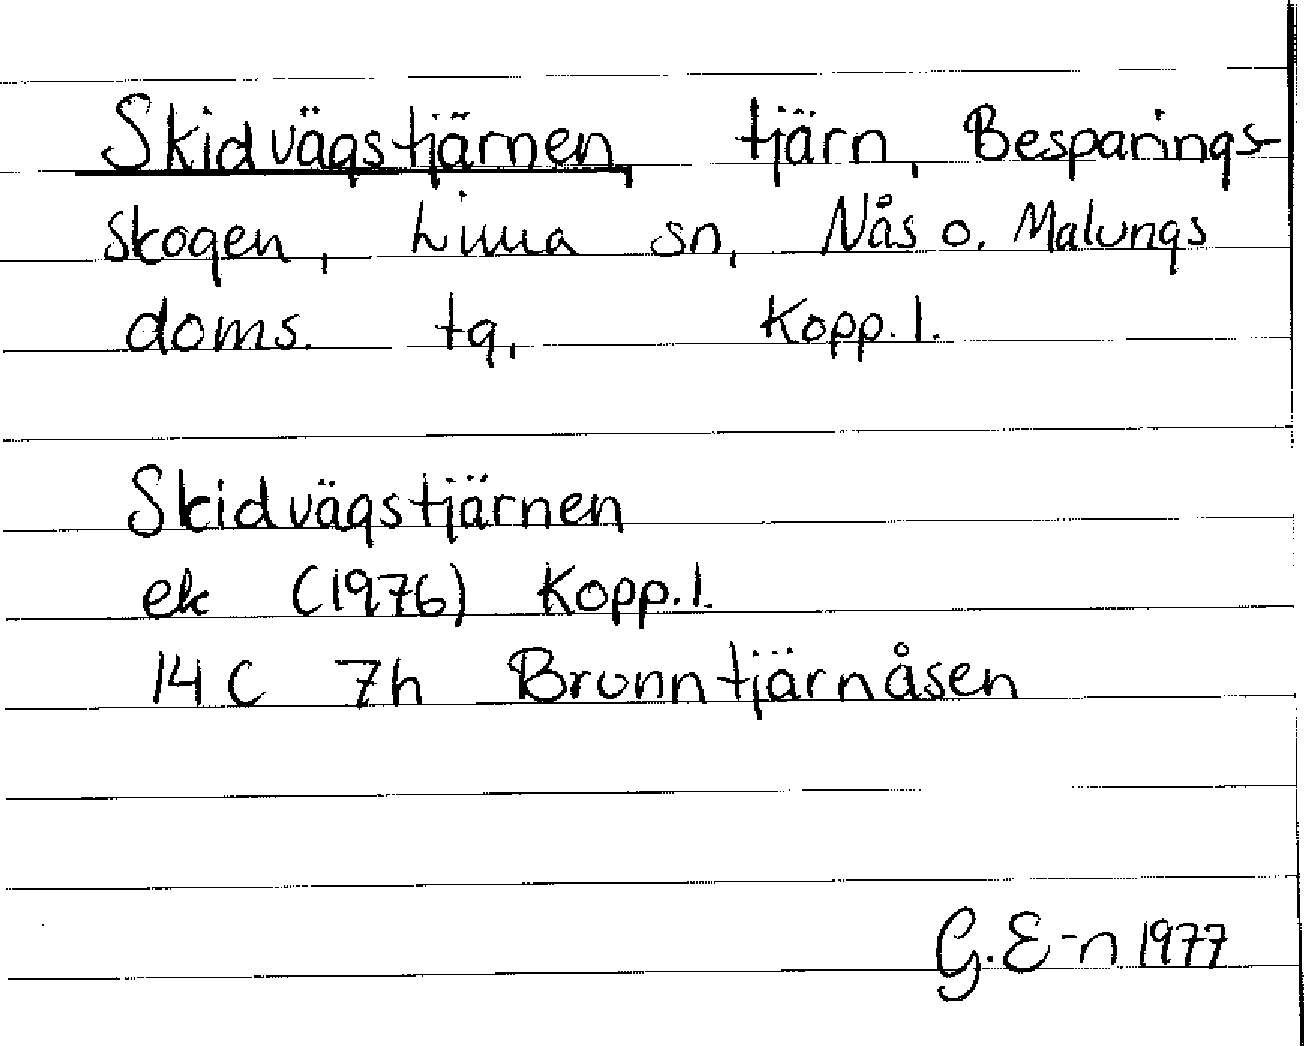 Skidvägstjärnen, tjärn, Besparings-
skogen, Lima sn, Nås o. Malungs
doms. tg, Kopp. l.
Skidvägstjärnen
ek (1976) Kopp. l.
14 C 7h Bronntjärnåsen
G. E-n 1977